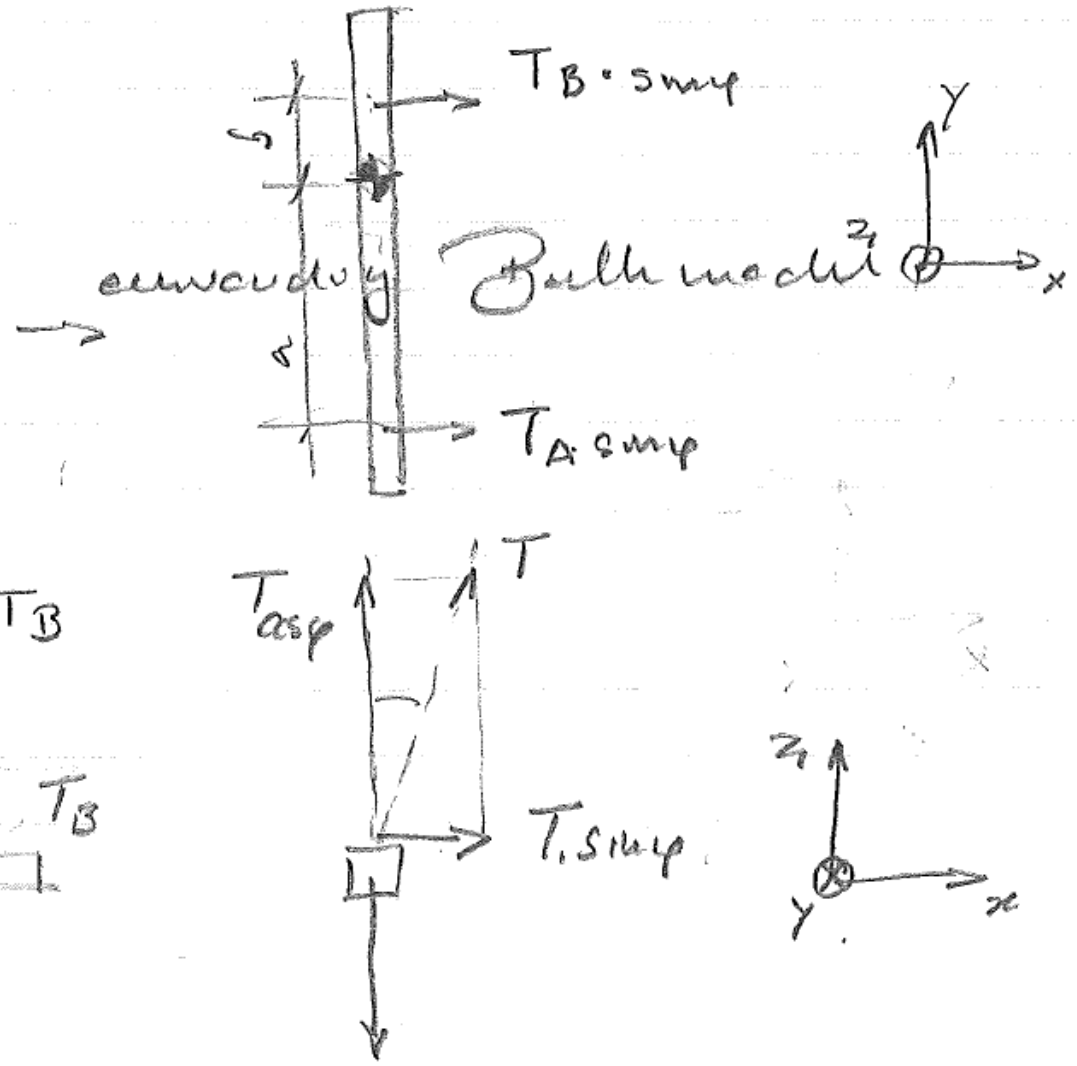 T_B · sinφ
b
Y
z
x
a
T_A · sinφ
T
T cosφ
T_B
z
T_B
T · sinφ
Y
x